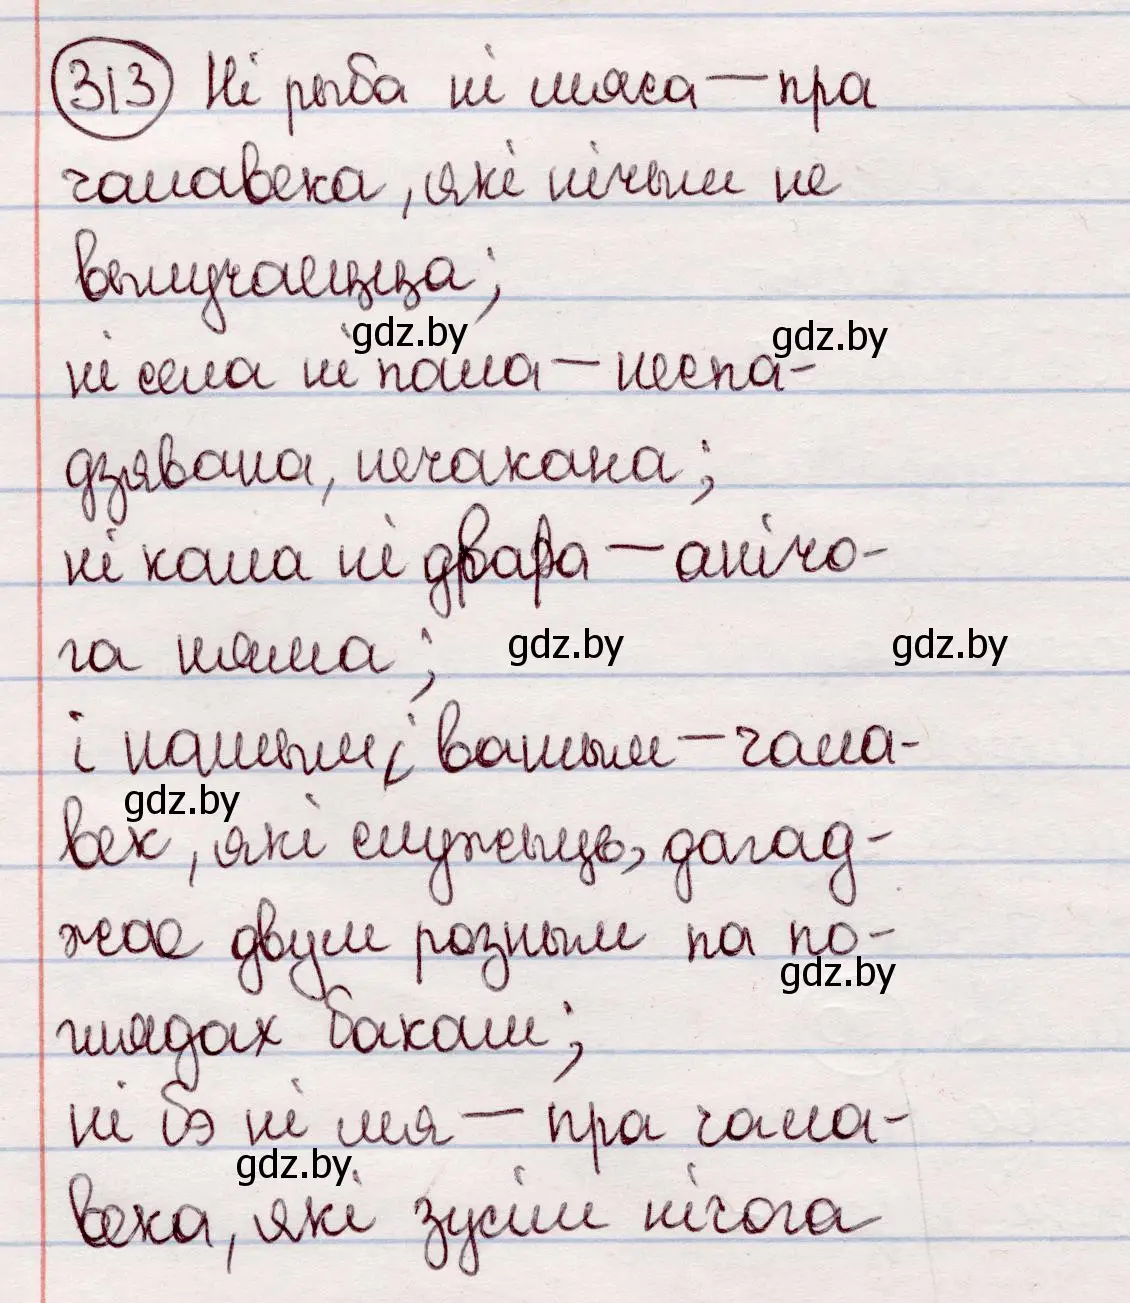 313 Ні рыба ні мяса — пра
чалавека, які нічым не
вылучаецца;
gdz.by gdz.by
ні села ні пала — неспа-
дзявана, нечакана;
ні кала ні двара — анічо-
га няма;
gdz.by gdz.by
і нашым і вашым — чала-
gdz.by
век, які служыць, дагад-
жае двум розным па по-
gdz.by
глядах бакам;
ні бэ ні мя — пра чала-
gdz.by
века, які зусім нічога